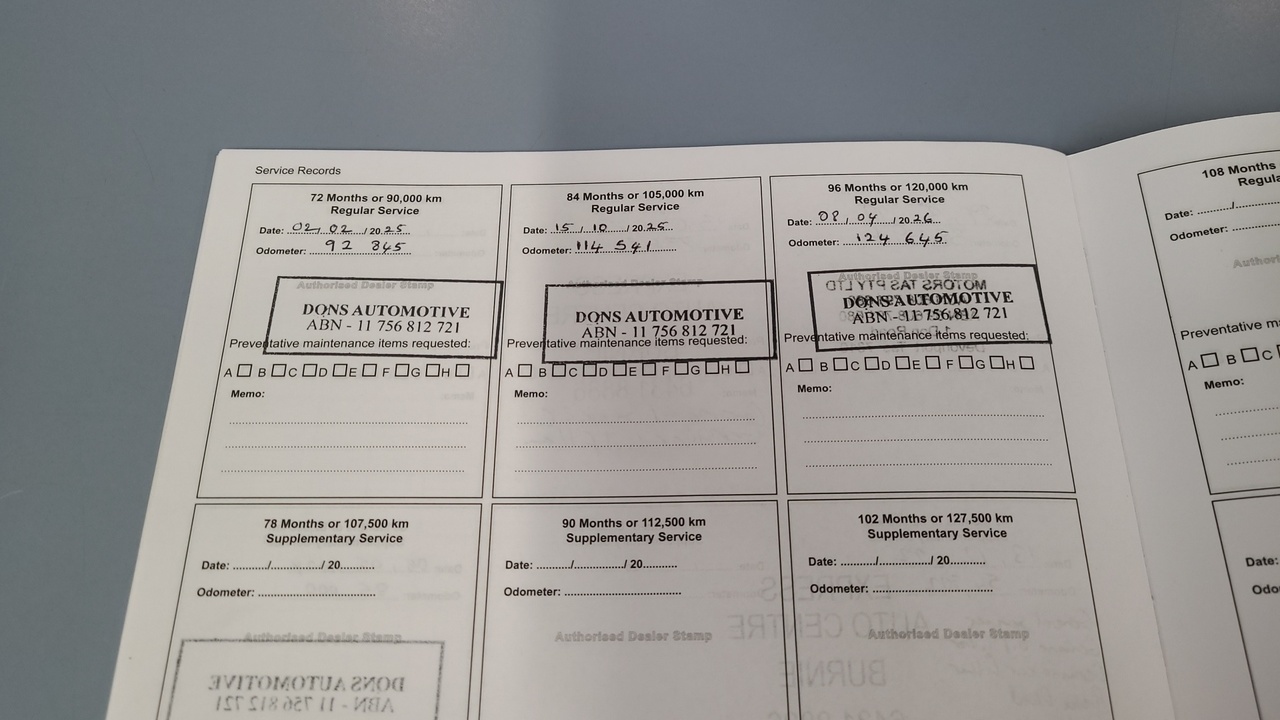 Service Records
72 Months or 90,000 km
Regular Service
Date: 02/02/2025
Odometer: 92 845
Authorised Dealer Stamp
DONS AUTOMOTIVE
ABN - 11 756 812 721
Preventative maintenance items requested:
A B C D E F G H
Memo:
84 Months or 105,000 km
Regular Service
Date: 15/10/2025
Odometer: 114 541
Authorised Dealer Stamp
DONS AUTOMOTIVE
ABN - 11 756 812 721
Preventative maintenance items requested:
A B C D E F G H
Memo:
96 Months or 120,000 km
Regular Service
Date: 08/04/2026
Odometer: 124 645
Authorised Dealer Stamp
MOTORS TAS PTY LTD
DONS AUTOMOTIVE
ABN - 11 756 812 721
Preventative maintenance items requested:
A B C D E F G H
Memo:
108 Months
Date:
Odometer:
Preventative
A B C
Memo:
78 Months or 107,500 km
Supplementary Service
Date: ........./............../ 20..........
Odometer:
Authorised Dealer Stamp
DONS AUTOMOTIVE
ABN - 11 756 812 721
90 Months or 112,500 km
Supplementary Service
Date: ........./............../ 20..........
Odometer:
Authorised Dealer Stamp
102 Months or 127,500 km
Supplementary Service
Date: ........./............../ 20..........
Odometer:
Authorised Dealer Stamp
EXPRESS
AUTO CENTRE
BURNIE
Date: